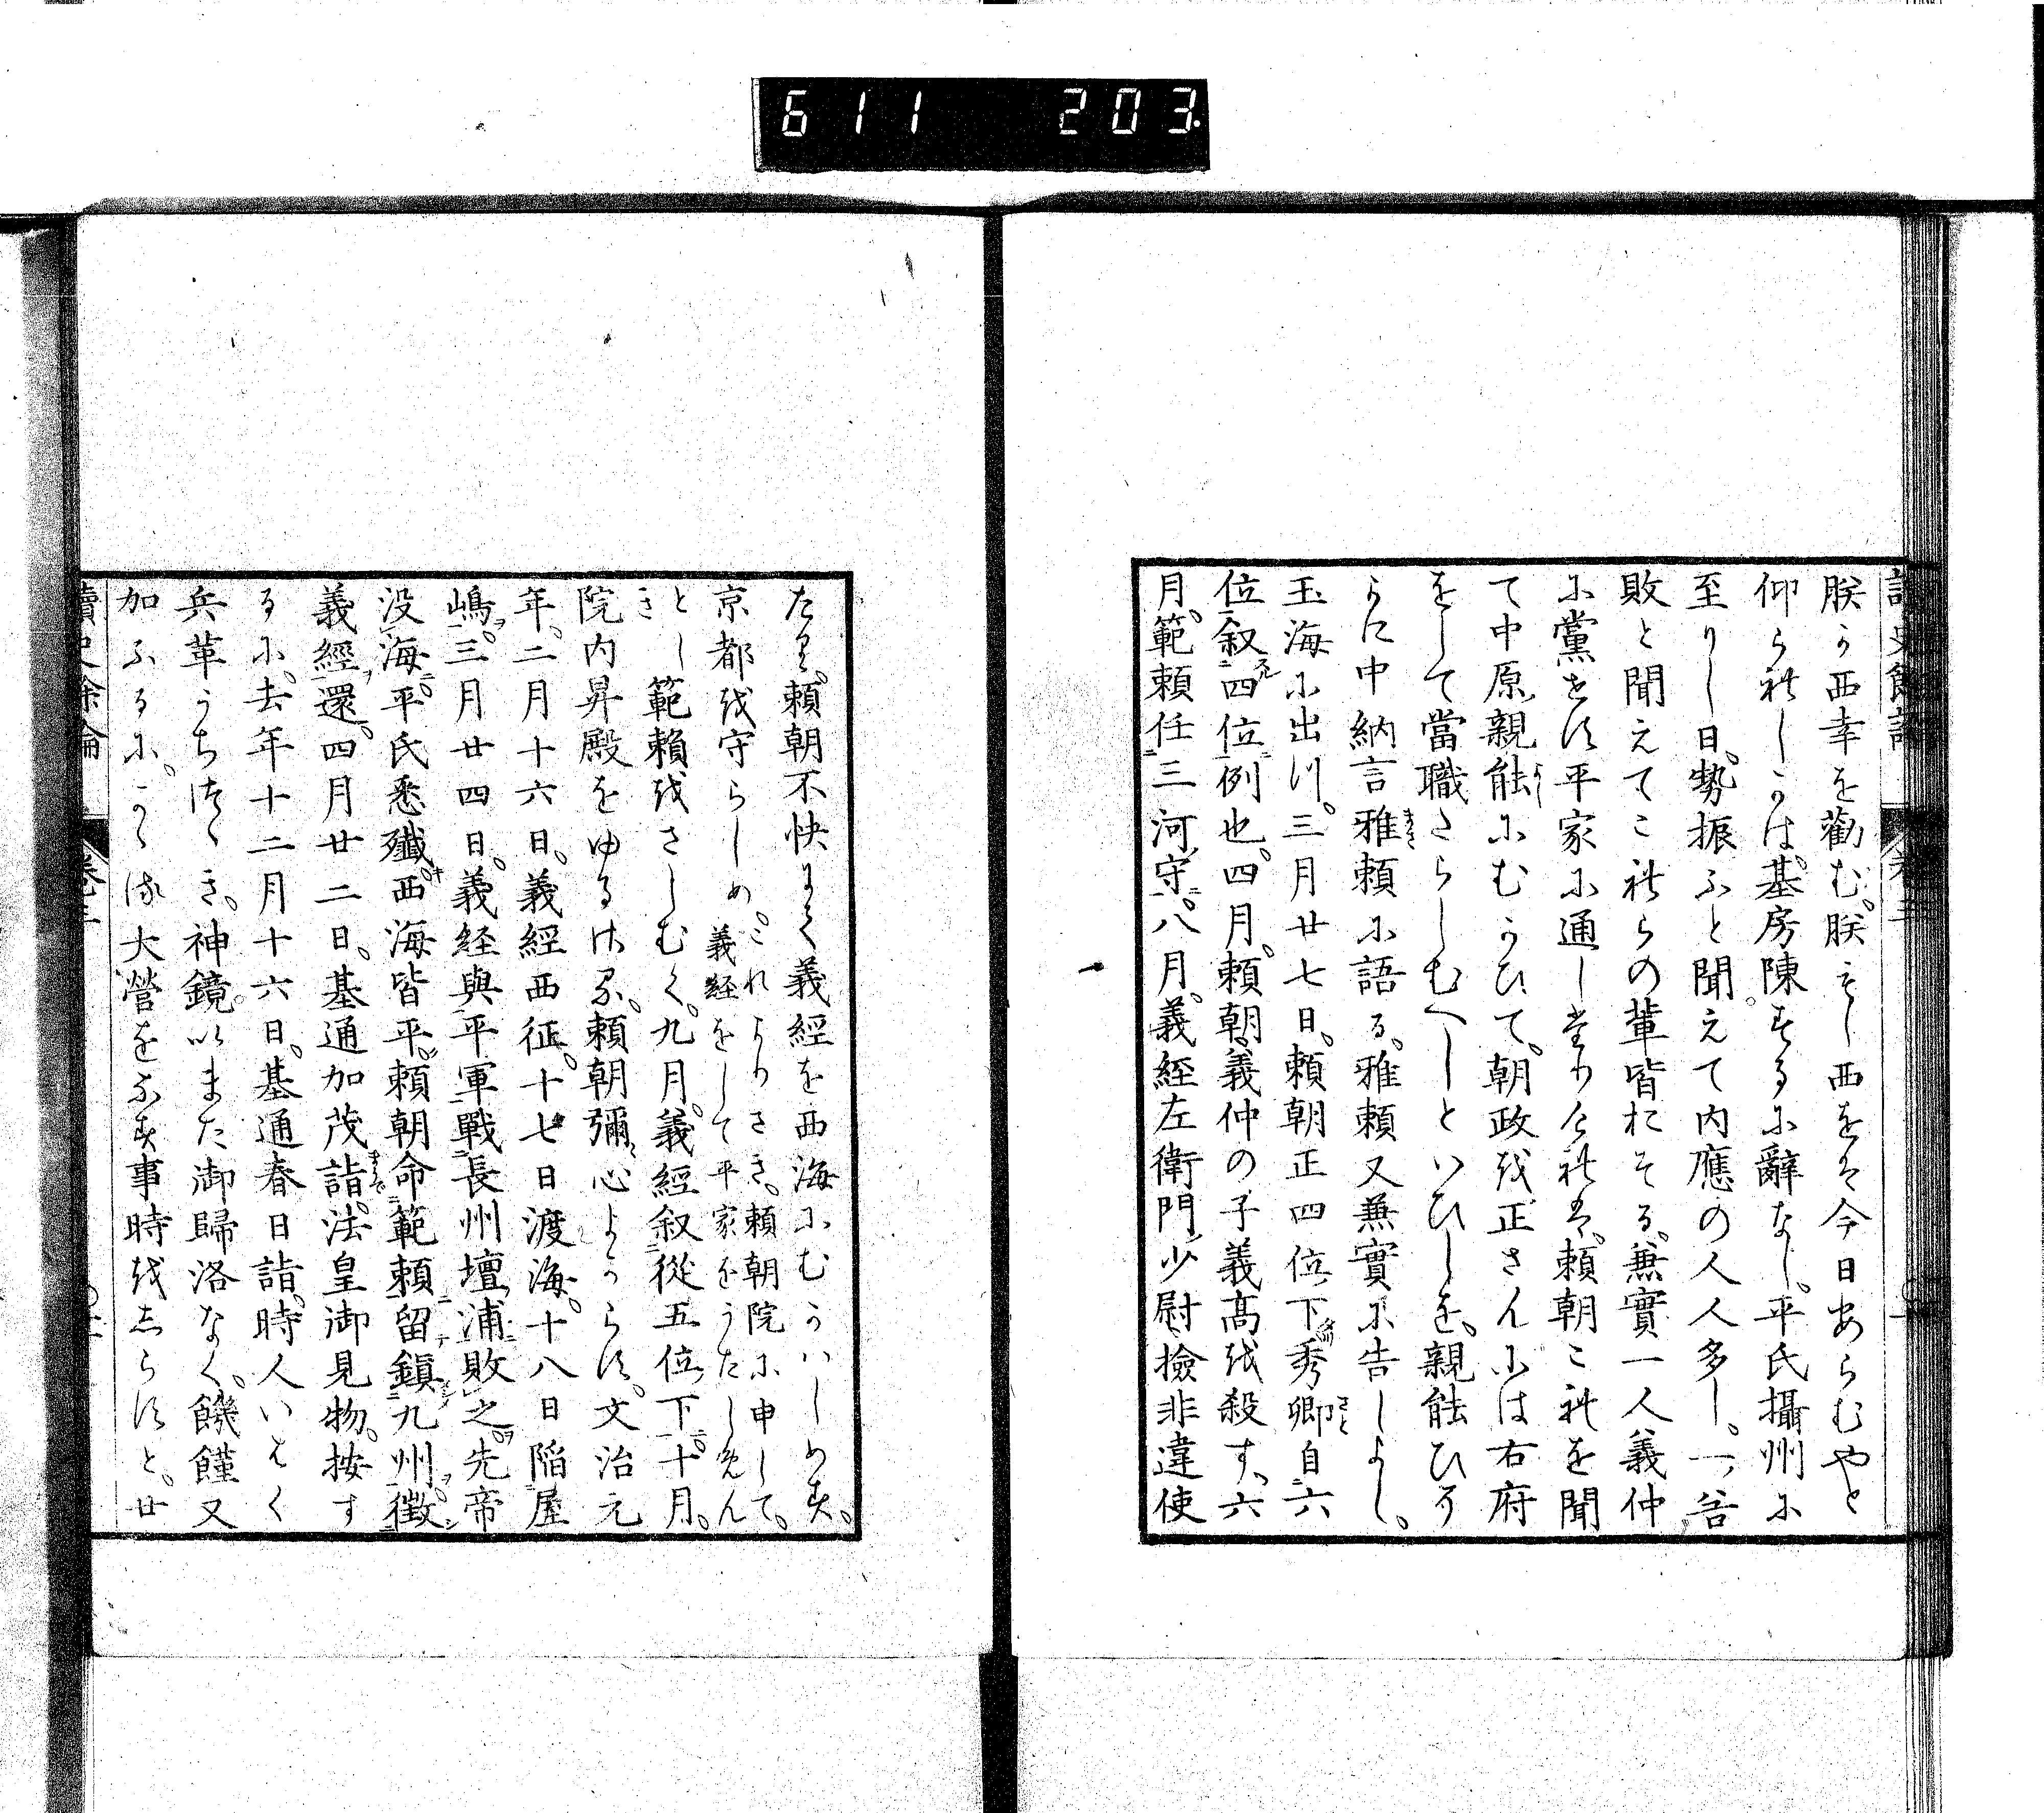 611 203.
讀史餘論 卷三
朕か西幸を勸む。朕もし西をは今日あらむやと
仰られしかは。基房陳するに辭なし。平氏攝州に
至りし日。勢振ふと聞えて内應の人人多し。一ノ谷
敗と聞えてこれらの輩皆おそる。兼實一人義仲
に黨せす平家に通し堂り介れは。頼朝これを聞
て中原親能にむかひて。朝政を正さんには右府
をして當職さらしむへしといひしを。親能ひそ
かに中納言雅頼に語る。雅頼又兼實に告しよし。
玉海に出つ。三月廿七日。頼朝正四位下秀卿自六
位叙四位例也。四月。頼朝義仲の子義高を殺す。六
月。範頼任三河守。八月。義経左衛門少尉撿非違使
たり。頼朝不快にて義經を西海にむかハしめす。
京都を守らしめ。これよりさき。頼朝院に申して。義経をして平家をうたしめん
とし範頼をさしむく。九月。義經叙從五位下。十月。
院内昇殿をゆるさる。頼朝彌心よからす。文治元
年。二月十六日。義經西征。十七日渡海。十八日陷屋
嶋。三月廿四日。義経與平軍戰長州壇浦敗之。先帝
没海。平氏悉殲西海皆平。頼朝命範頼留鎭九州。徴
義經還。四月廿二日。基通加茂詣。法皇御見物。按す
るに。去年十二月十六日。基通春日詣。時人いはく
兵革うちつゝき。神鏡いまた御歸洛なく。饑饉又
加ふるに。かゝる大營をなす事時をしらすと。廿
讀史餘論 卷三